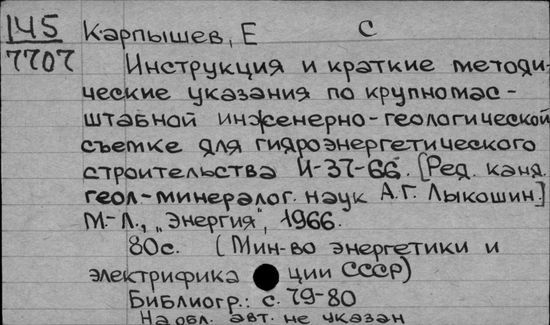 145 Карпышев, Е С
7707 Инструкция и краткие методи-
ческие указания по крупномас-
штабной инженерно-геологической
съемке для гидроэнергетического
строительства И-37-66. [Ред. канд.
геол-минералог. наук А.Г. Лыкошин.]
М.-Л., „Энергия", 1966.
80с. (Мин-во энергетики и
электрифика ции СССР)
Библиогр.: с. 79-80
На обл. авт. не указан